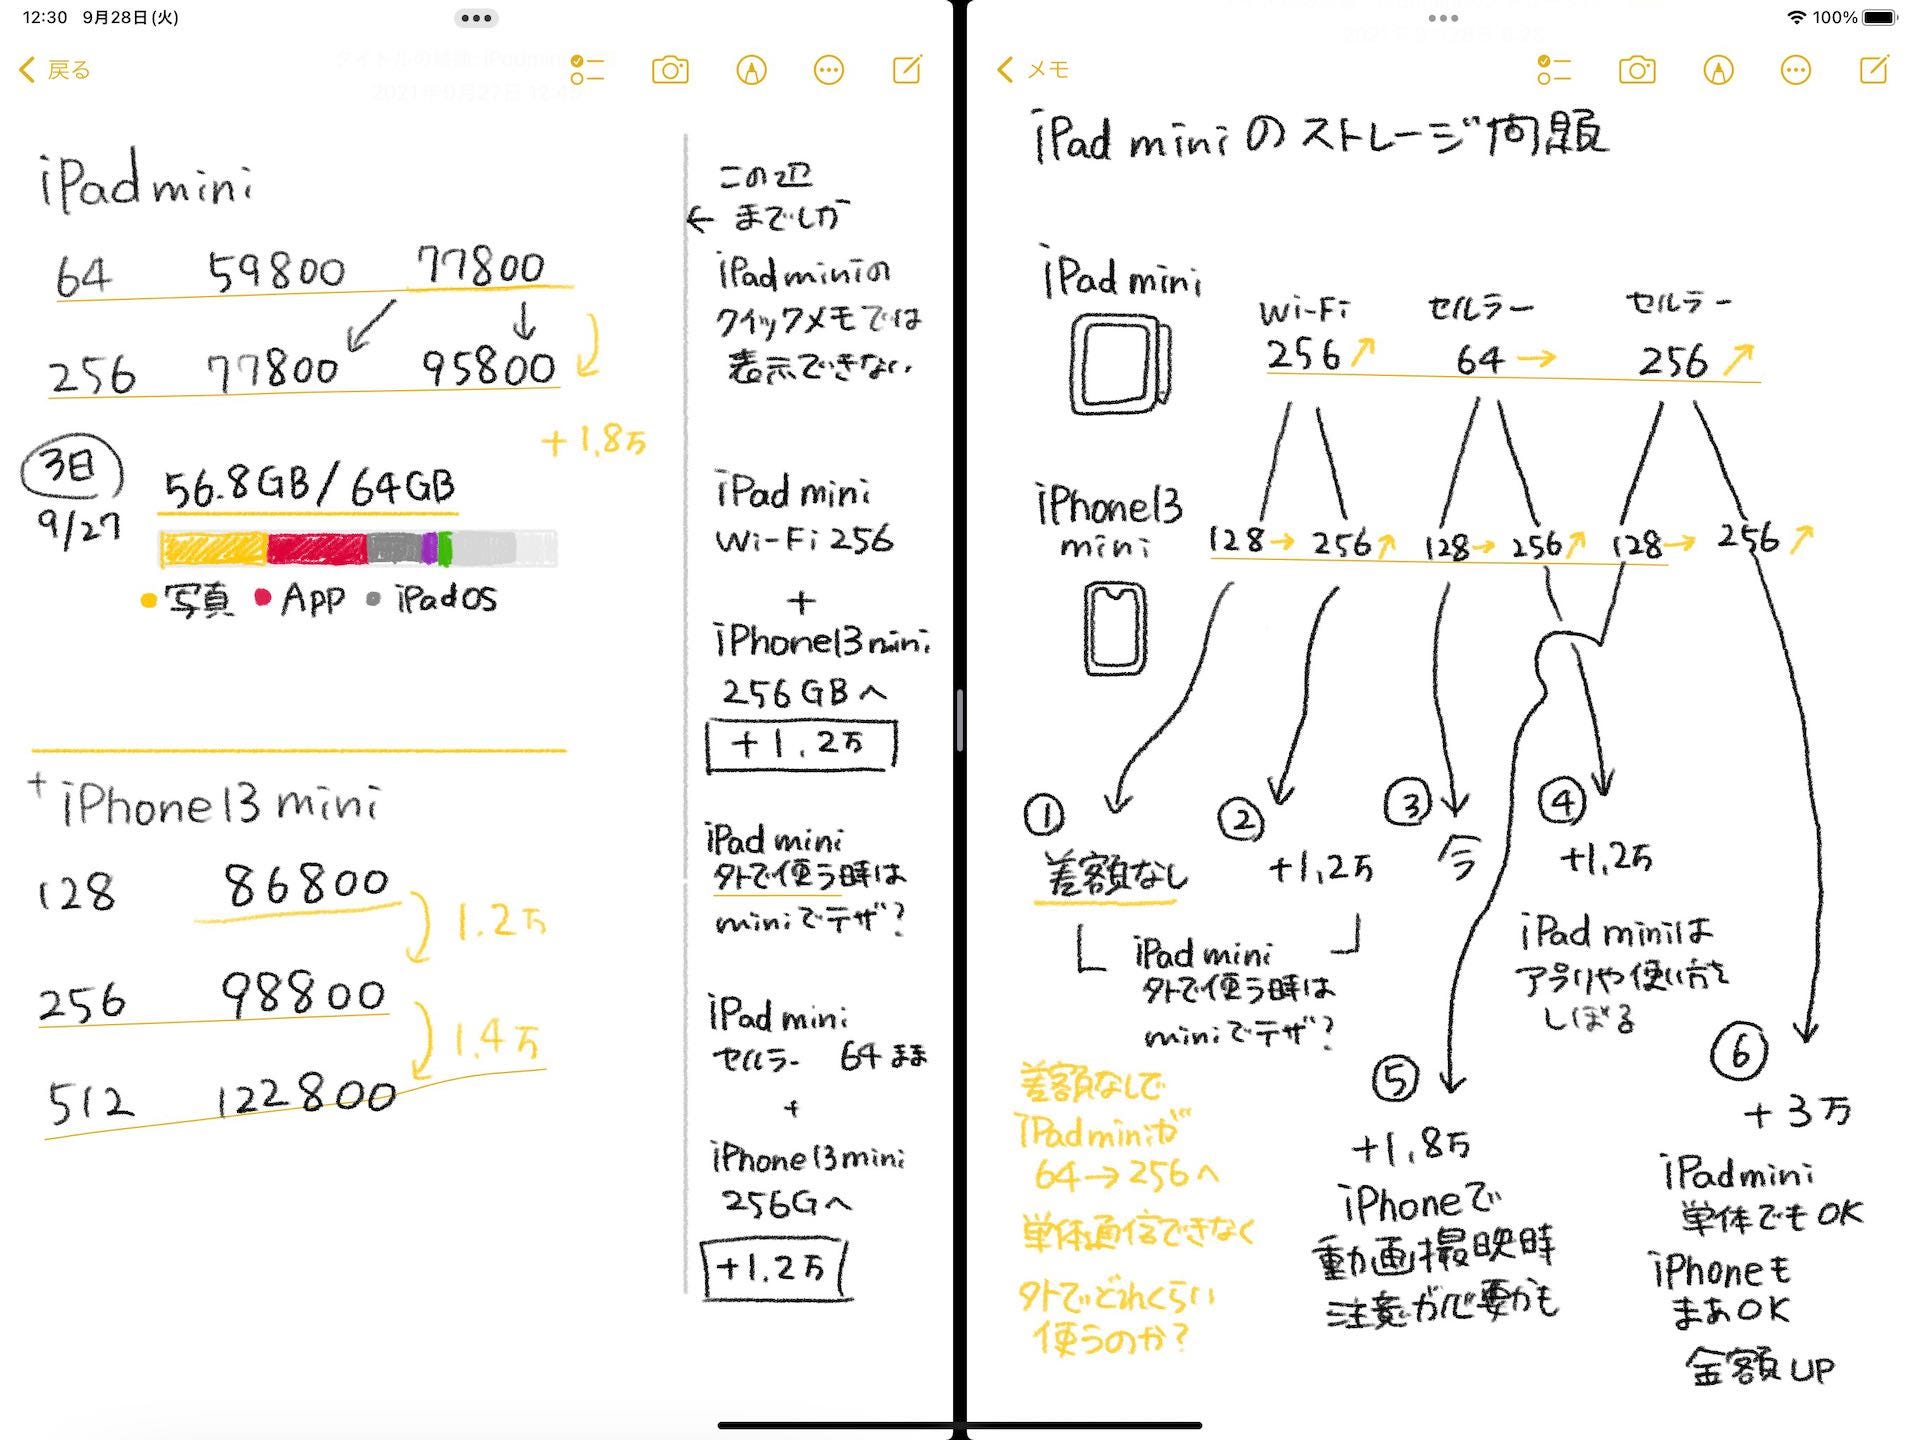 12:30 9月28日(火)
100%
戻る
2021年9月27日 12:48
iPad mini
64 59800 77800
256 77800 95800
+1.8万
3日
9/27
56.8GB/64GB
写真 App iPadOS
+ iPhone13 mini
128 86800
1.2万
256 98800
1.4万
512 122800
この辺
← までしか
iPad miniの
クイックメモでは
表示できない
iPad mini
Wi-Fi 256
+
iPhone13 mini
256GBへ
+1.2万
iPad mini
外で使う時は
miniでテザ?
iPad mini
セルラー 64まま
+
iPhone13 mini
256Gへ
+1.2万
メモ
iPad miniのストレージ問題
iPad mini
Wi-Fi セルラー セルラー
256↗ 64→ 256↗
iPhone13
mini
128→ 256↗ 128→ 256↗ 128→ 256↗
① ② ③ ④
差額なし +1.2万 今 +1.2万
iPad mini
外で使う時は
miniでテザ?
iPad miniは
アプリや使い方を
しぼる
差額なしで
iPad miniが
64→256へ
単体通信できなく
外でどれくらい
使うのか?
⑤
+1.8万
iPhoneで
動画撮映時
注意が必要かも
⑥
+3万
iPad mini
単体でもOK
iPhoneも
まあOK
金額UP